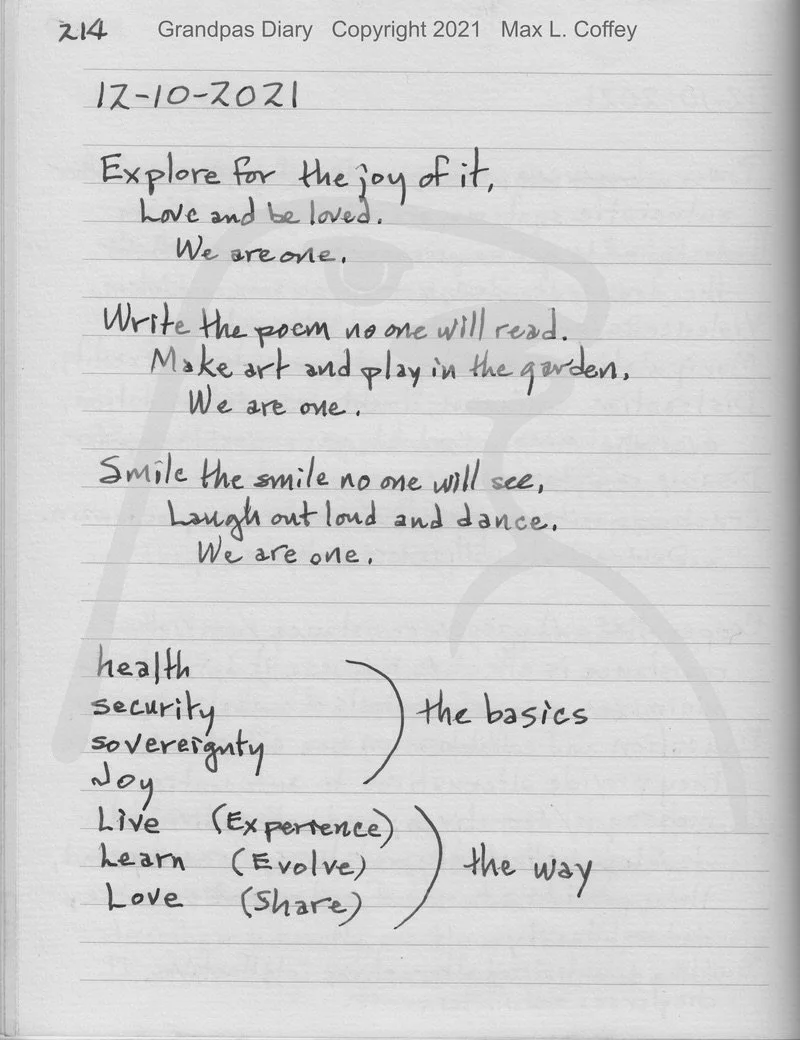 214 Grandpas Diary Copyright 2021 Max L. Coffey
12-10-2021
Explore for the joy of it,
Love and be loved.
We are one.
Write the poem no one will read.
Make art and play in the garden.
We are one.
Smile the smile no one will see,
Laugh out loud and dance.
We are one.
health
security
sovereignty
Joy
the basics
Live (Experience)
Learn (Evolve)
Love (Share)
the way